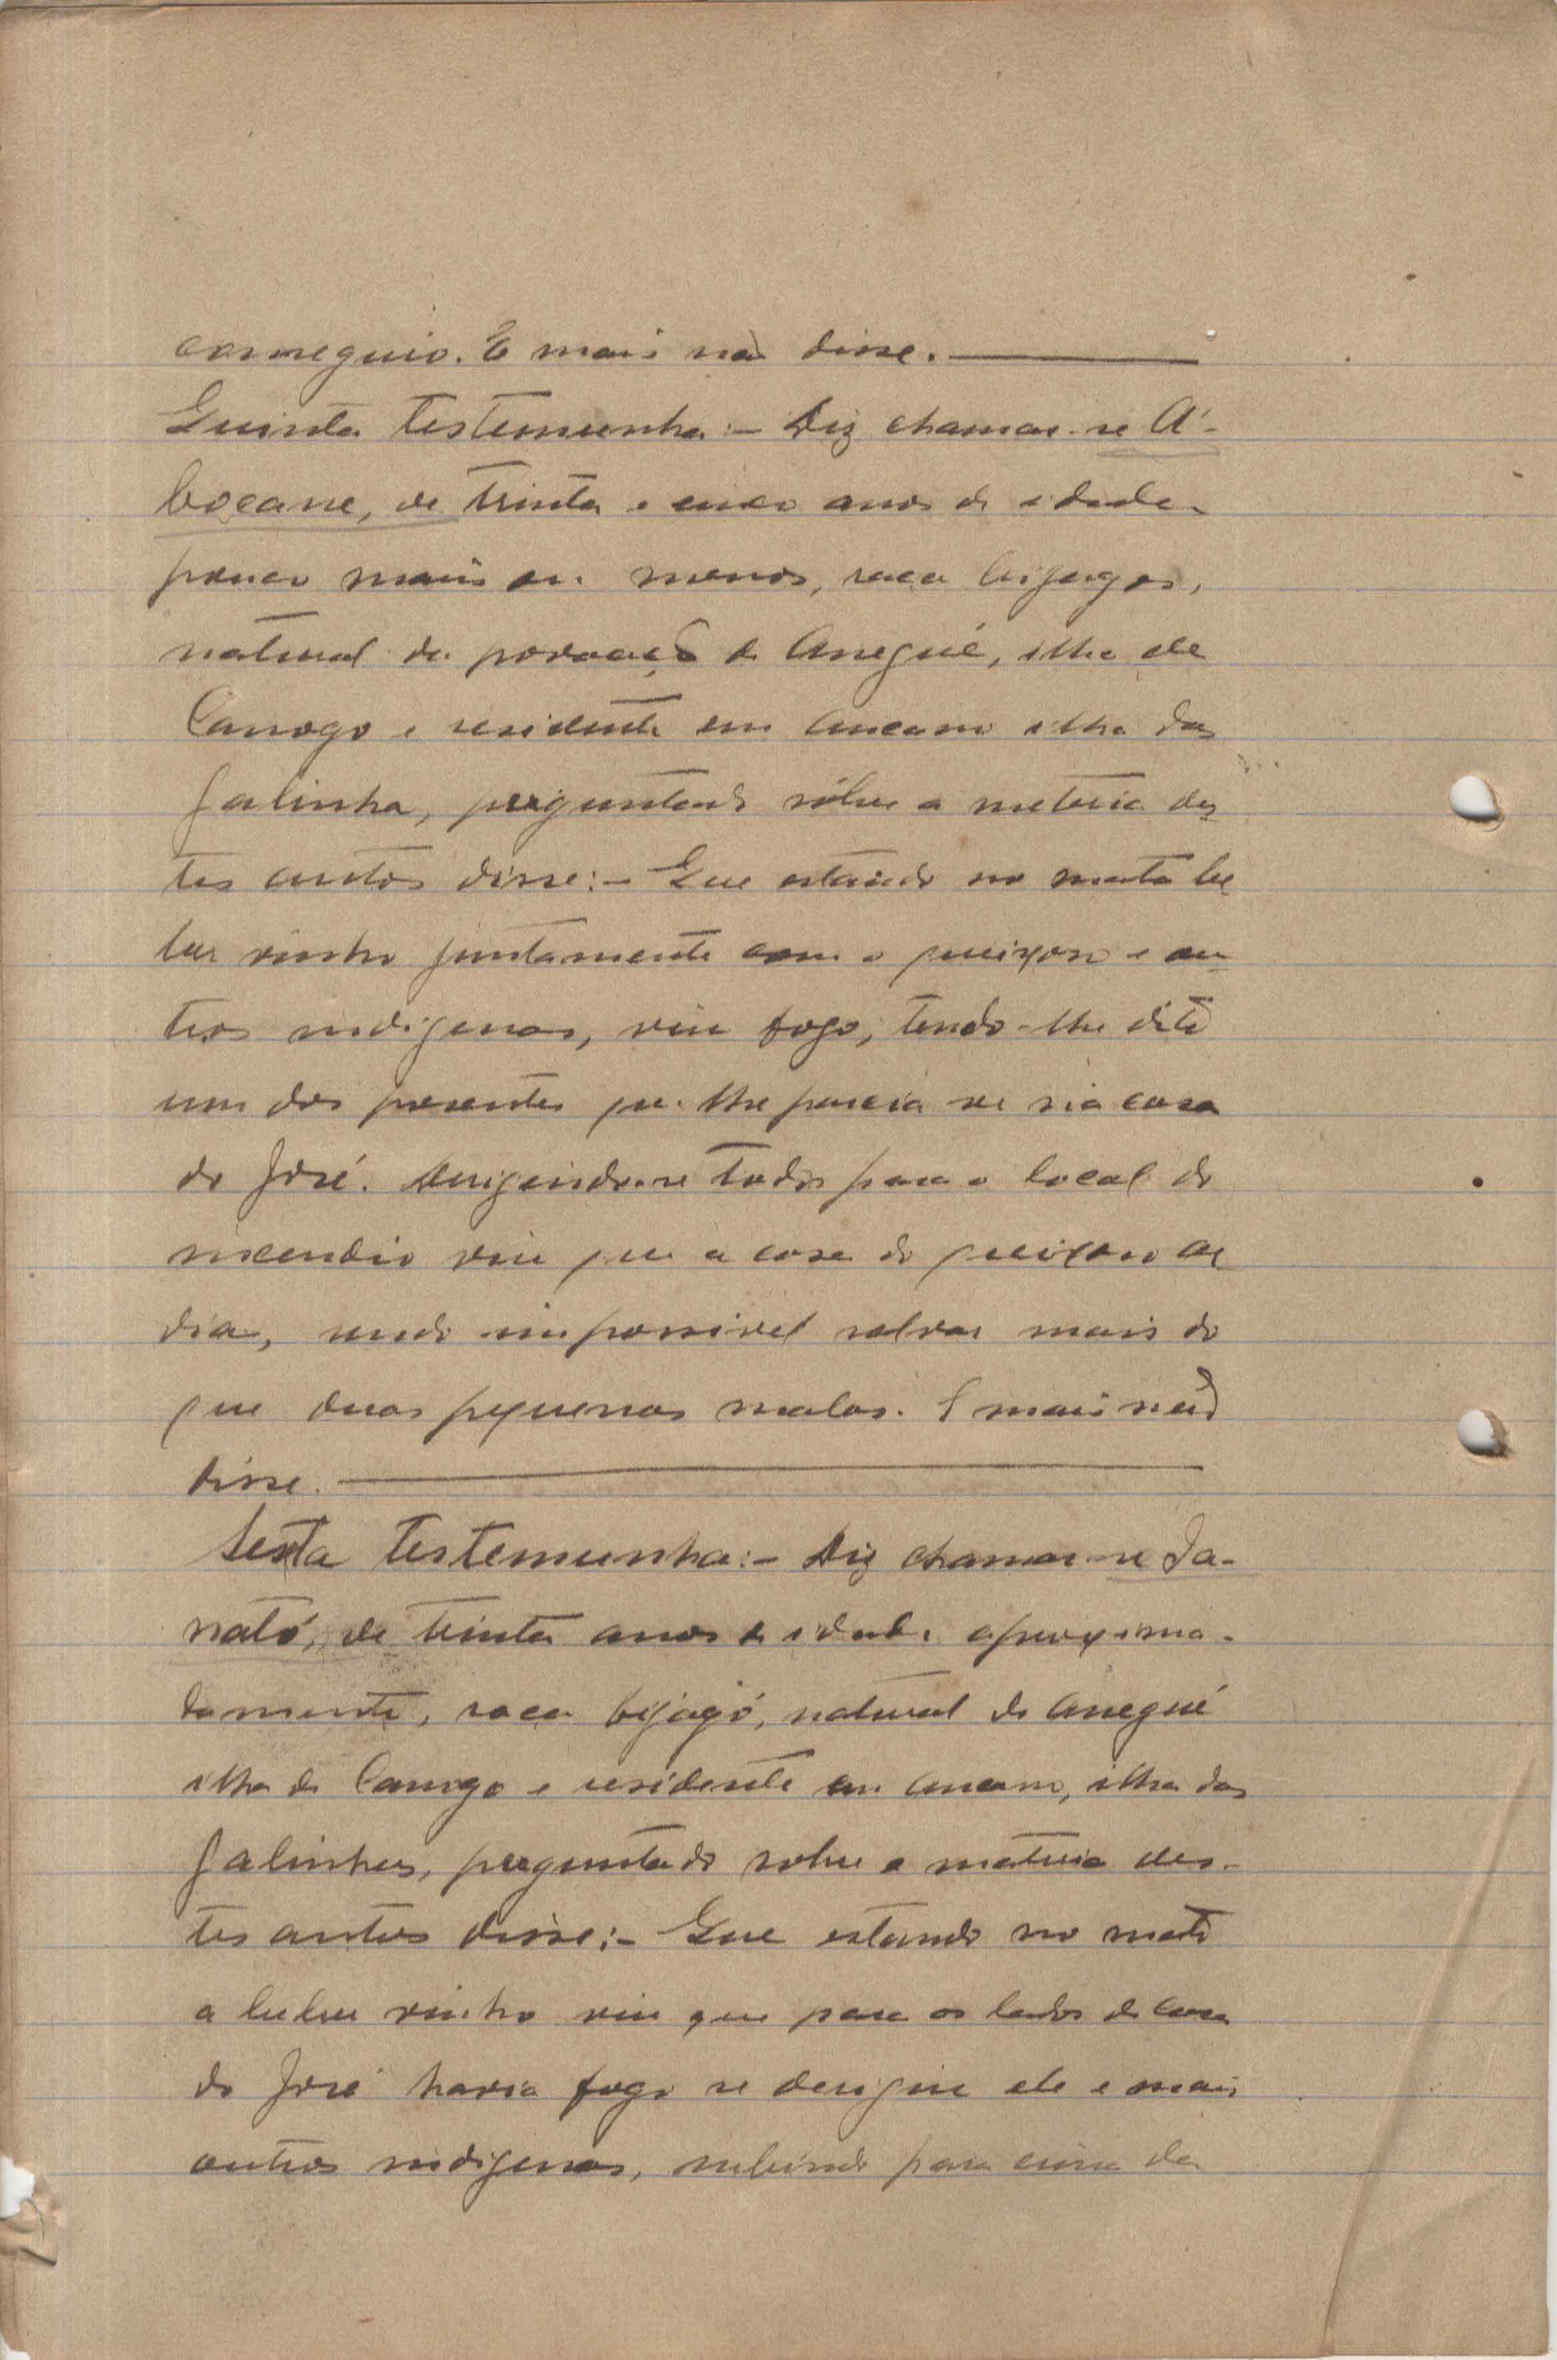 conseguio. E mais não disse.
Quinta testemunha:- Diz chamar-se A-
bocane, de trinta e cinco anos de idade
pouco mais ou menos, raça bijagos,
natural da povoação de Aneguè, ilha de
Canogo e residente em Ancamo ilha das
Galinha, perguntado sôbre a materia des
tes autos disse:- Que estando no mato be
ber vinho juntamente com o queixoso e ou
tros indigenas, viu fogo, tendo-lhe dito
um dos presentes que lhe parecia ser na casa
do José. Dirigindo-se todos para o local do
incendio viu que a casa do queixoso ar
dia, sendo impossivel salvar mais do
que duas pequenas malas. E mais não
disse.
Sexta testemunha:- Diz chamar-se Ja-
nató, de trinta anos de idade aproxima-
damente, raça bijagó, natural de Anegué
ilha de Canogo e residente em Ancamo, ilha das
Galinhas, perguntado sobre a materia des-
tes autos disse:- Que estando no mato
a beber vinho viu que para os lados da casa
do José havia fogo se derigiu ele e mais
outros indigenas, subindo para cima da